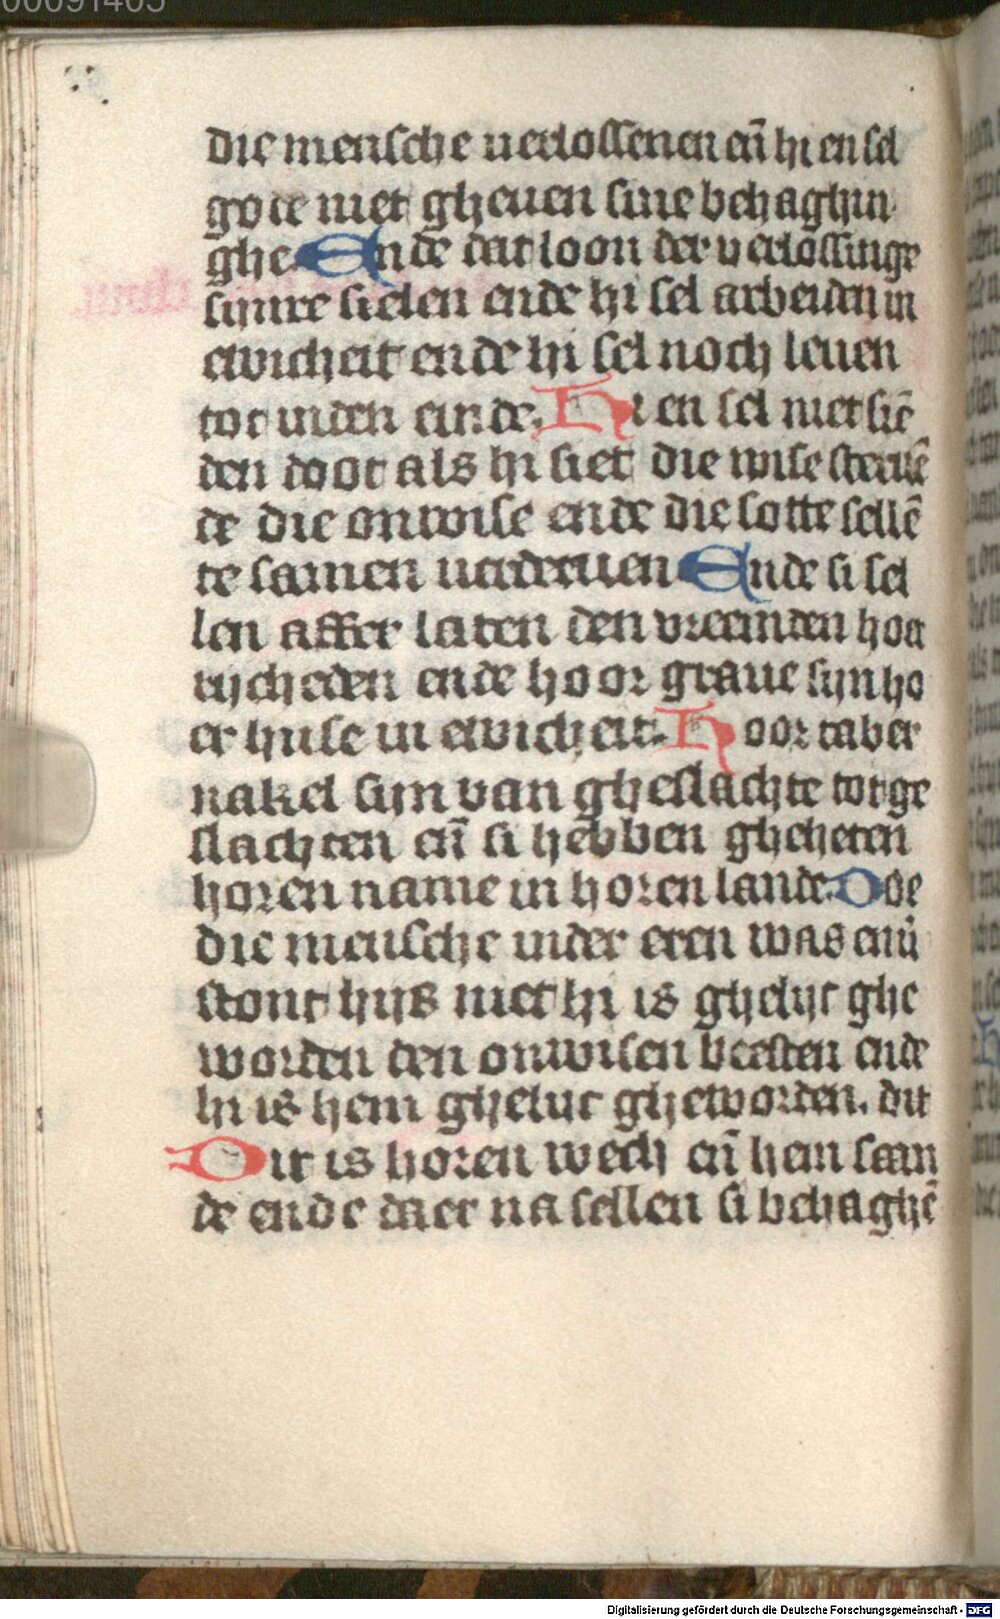 00091405
die mensche verlossenen en̄ hi en sel
gode niet gheuen sine behaghin
ghe Ende dat loon der verlossinge
sijnre sielen ende hi sel arbeiden in
ewicheit ende hi sel noch leuen
tot inden einde. Hi en sel niet siē
den doot als hi siet die wise steruē
de die onwise ende die sotte sellē
te samen verderuen Ende si sel
len after laten den vreemden hoer
rijcheden ende hoor graue sijn ho
er huse in ewicheit. Hoor taber
nakel sijn van gheslachte tot ge
slachten en̄ si hebben gheheten
horen name in horen lande. Doe
die mensche inder eren was en v̄
stont hijs niet hi is ghelijc ghe
worden den onwisen beesten ende
hi is hem ghelijc gheworden. dit
Dit is horen wech en̄ hem scan
de ende daer na sellen si behaghē
Digitalisierung gefördert durch die Deutsche Forschungsgemeinschaft - DFG